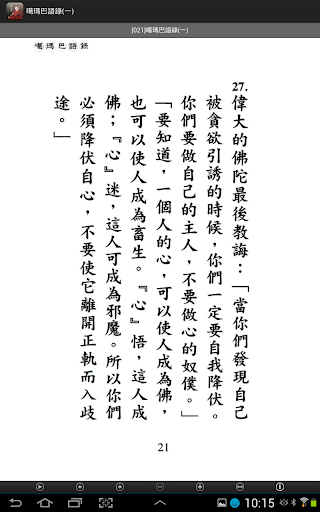 噶瑪巴語錄(一)
[021]噶瑪巴語錄(一)
噶瑪巴語錄
27. 偉大的佛陀最後教誨：「當你們發現自己
被貪欲引誘的時候，你們一定要自我降伏。
你們要做自己的主人，不要做心的奴僕。」
「要知道，一個人的心，可以使人成為佛，
也可以使人成為畜生。『心』悟，這人成
佛；『心』迷，這人可成為邪魔。所以你們
必須降伏自心，不要使它離開正軌而入歧
途。」
21
10:15